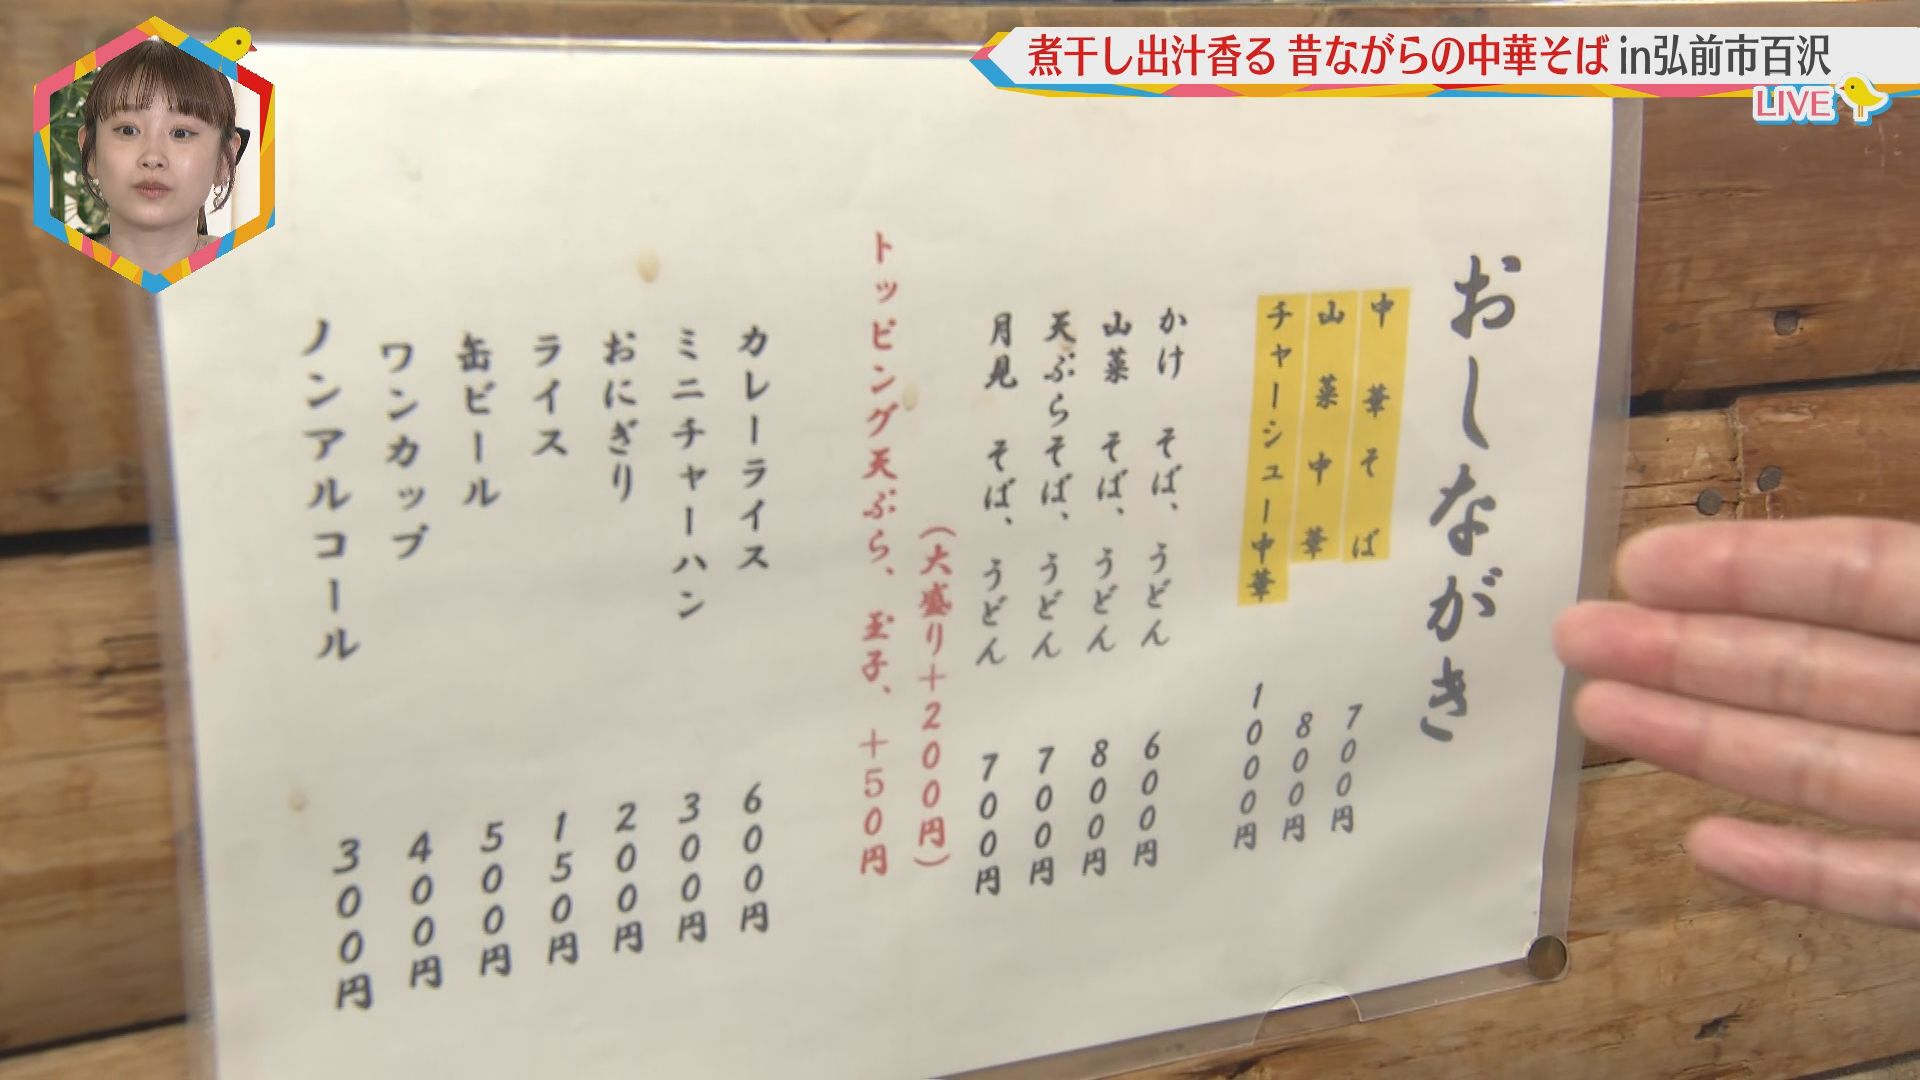 煮干し出汁香る 昔ながらの中華そば in弘前市百沢
LIVE
おしながき
中華そば 700円
山菜中華 800円
チャーシュー中華 1000円
かけ そば、うどん 600円
山菜 そば、うどん 800円
天ぷらそば、うどん 700円
月見 そば、うどん 700円
(大盛り+200円)
トッピング天ぷら、玉子、+50円
カレーライス 600円
ミニチャーハン 300円
おにぎり 200円
ライス 150円
缶ビール 500円
ワンカップ 400円
ノンアルコール 300円